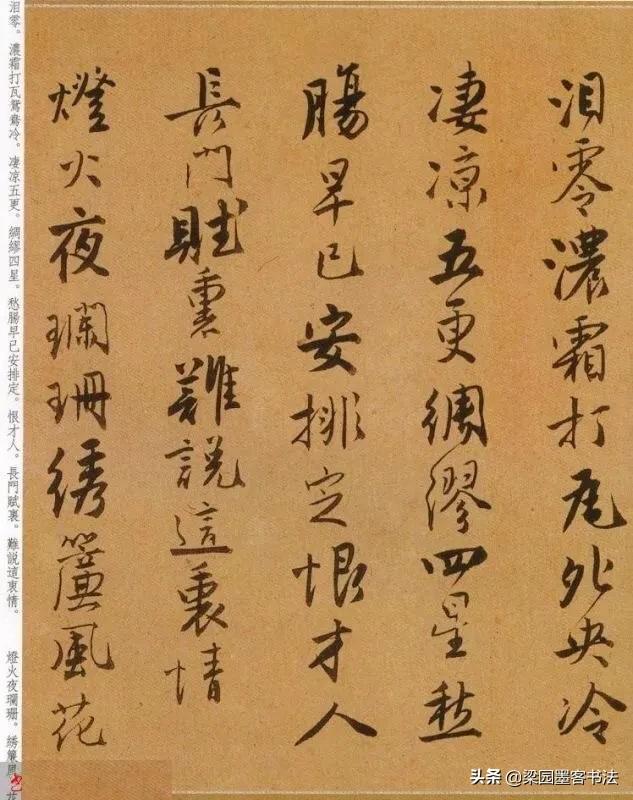 泪零濃霜打瓦夗央冷
凄凉五更綢繆四星愁
腸早已安排定恨才人
長門賦裏難説這衷情
燈火夜瓓珊綉簾風花
泪零。濃霜打瓦鴛鴦冷。凄凉五更。綢繆四星。愁腸早已安排定。恨才人。長門賦裏。難説這衷情。 燈火夜瓓珊。綉簾風
头条 @梁园墨客书法